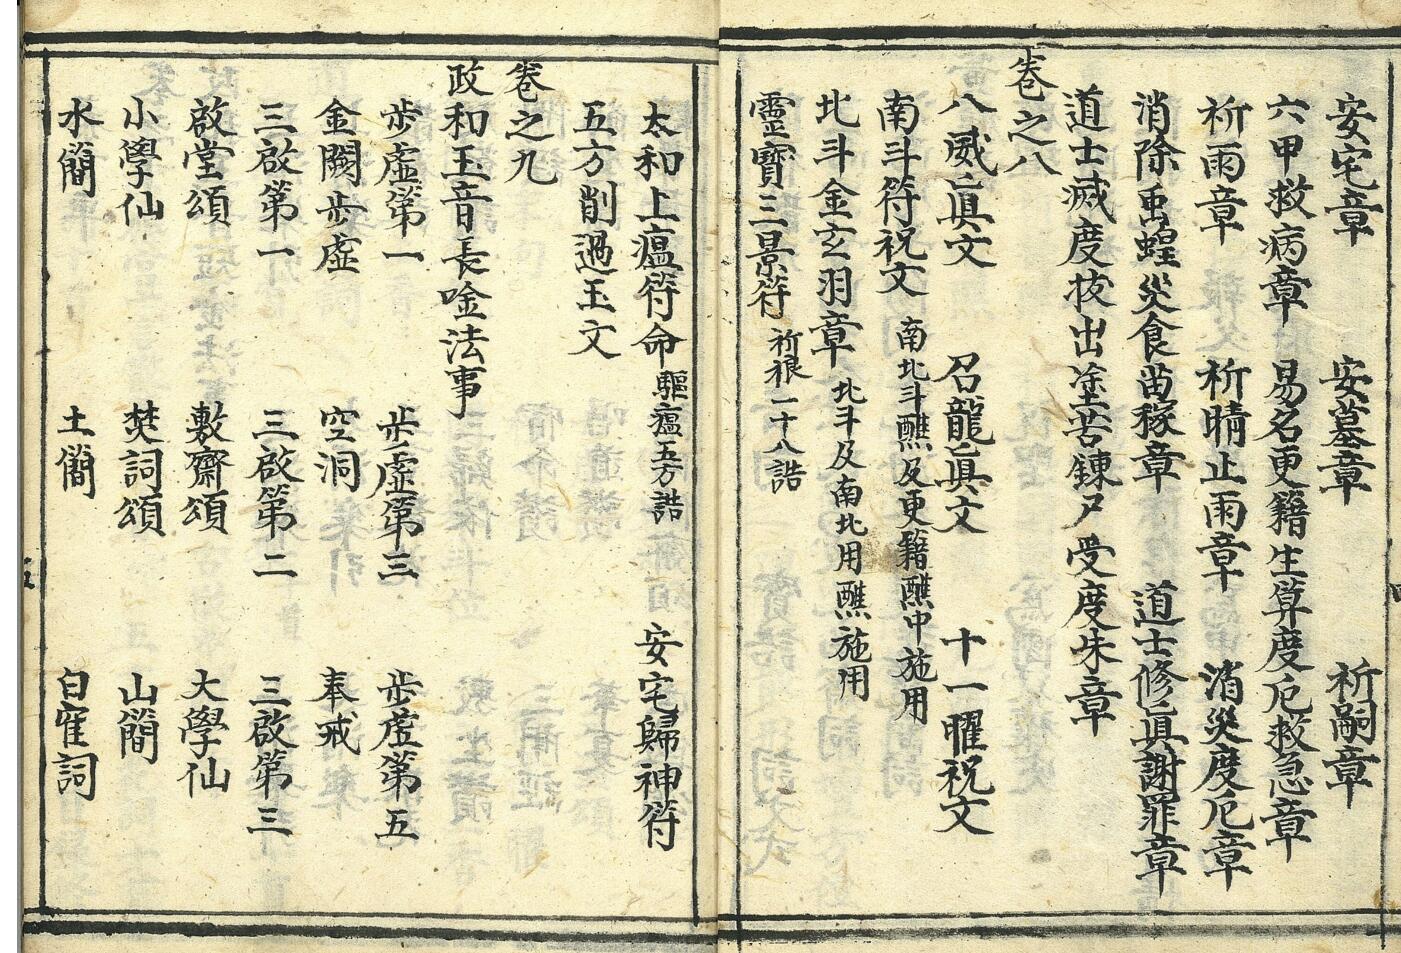 安宅章　安墓章　祈嗣章
六甲救病章　易名更籍生算度厄救急章
祈雨章　祈晴止雨章　消災度厄章
消除䖝蝗災食苗稼章　道士修眞謝罪章
道士滅度拔出塗苦鍊尸受度朱章
卷之八
八威眞文　召龍眞文　十一曜祝文
南斗符祝文　南北斗醮及更籍醮中施用
北斗金玄羽章　北斗及南北用醮施用
靈寶三景符　二十八誥
太和上瘟符命　驅瘟五方誥　安宅歸神符
五方削過玉文
卷之九
政和玉音長唫法事
步虛第一　步虛第三　步虛第五
金闕步虛　空洞　奉戒
三啟第一　三啟第二　三啟第三
啟堂頌　敷齋頌　大學仙
小學仙　焚詞頌　山簡
水簡　土簡　白寉詞
五
四